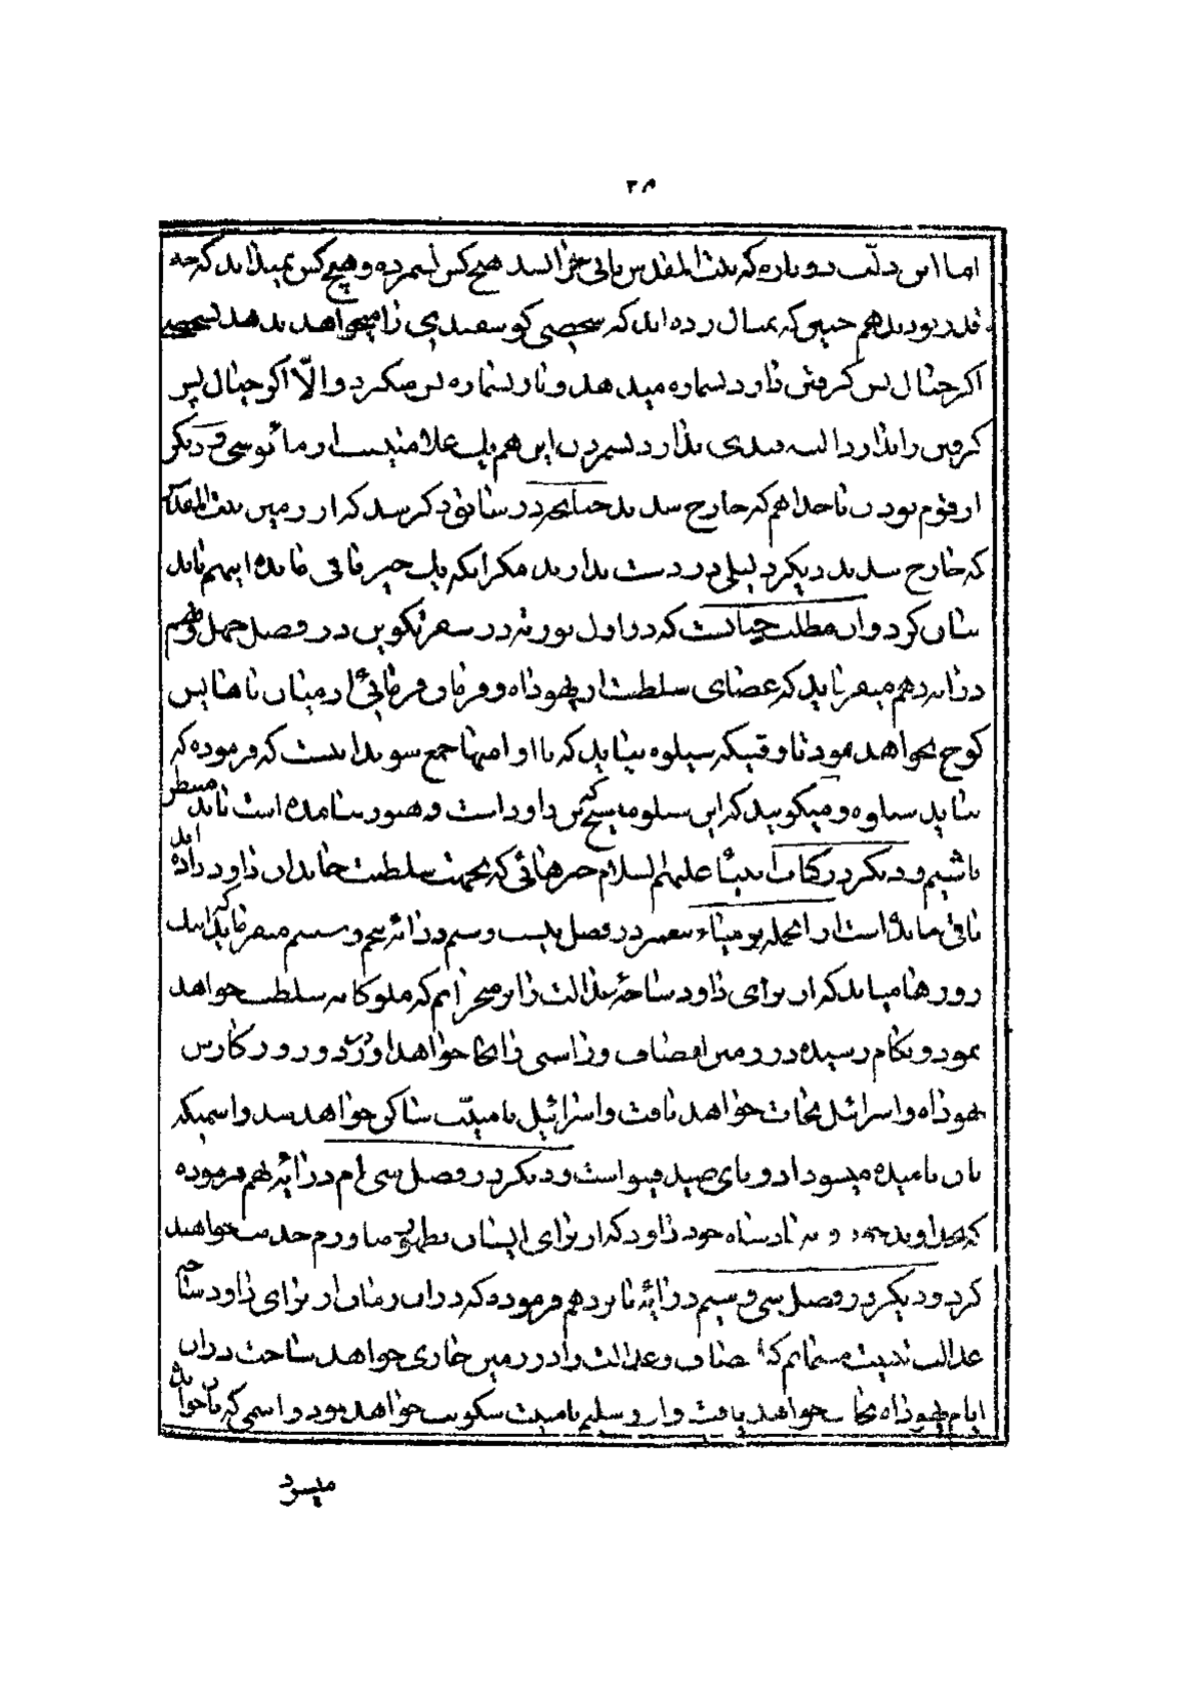 ۳۸
اما این دلّت دوباره که بیت المقدس باقی خرابشد هیچ کس نشمرده و هیچ کس نمیداند که چه
قدر بودند هم چنین که مثال زده اند که شخصی کوسفندی را میخواهد بدهد بشخصی
اکر خیال پس کرفتن دارد بشماره میدهد و باز بشماره پس میکیرد والّا اکر خیال پس
کرفتن را ندارد البته قیدی ندارد بشمردن این هم یک علامتیست از مأیوسی و دیکر
از قوم یهودان تا حدا هم که خارج شدند چنانچه در سابق ذکر شد که از زمین بیت المقدس
که خارج شدند دیکر دلیلی در دست ندارند مکر اینکه یک چیز باقی مانده اینهم باید
بیان کرد و آن مطلب چنانست که در اول توریة در سفر تکوین در فصل چهل و نهم
در آیه دهم میفرماید که عصای سلطنت از یهوداه و فرمان فرمائی از میان پاهایش
کوچ نخواهد نمود تا وقتیکه شیلوه بیاید که با او امتها جمع شوند اینست که فرموده که
بیاید شیلوه و میکویید که این شیلو مسیح کش داود است و هنوز نیامده است باید منتظر
باشیم و دیکر در کتاب انبیأ علیهم السلام خبرهائی که بجهت سلطنت خاندان داود داده اند
باقی مانده است از انجمله یرمیاء پیغمبر در فصل بیست و سیم در آیه پنجم و ششم میفرماید که اینک
روزها میاید که از برای داود شاخهٔ عدالت را برمیخزانم که ملوکانه سلطنت خواهد
نمود و بکام رسیده در زمین انصاف و راستی را بجا خواهد اورد و در روزکارش
یهوداه و اسرائیل نجات خواهد یافت و اسرائیل بامنیّت ساکن خواهد شد و اسمیکه
بان نامیده میشود ادونای صیدقینو است و دیکر در فصل سی ام در آیهٔ نهم فرموده
که بخداوند خود و به پادشاه خود داود که از برای ایشان مطیع میاورم خدمت خواهند
کرد و دیکر در فصل سی و سیم در آیهٔ پانزدهم فرموده که در ان زمان از برای داود شاخه
عدالت نبیت مینمایم که انصاف و عدالت را در زمین جاری خواهد ساخت در ان
ایام یهوداه نجات خواهد یافت و اورشلیم بامنیت سکونت خواهد نمود و اسمی که بآن خوانده
میشود